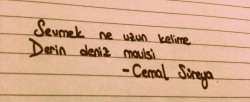 Sevmek ne uzun kelime
Derin deniz mavisi
- Cemal Süreya